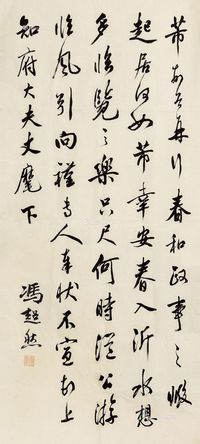 芾頓首再拜春和政事之暇
起居何如芾幸安春入沂水想
多臨覽之樂只尺何時從公游
臨風引向謹專人奉狀不宣芾上
知府大夫丈麾下
馮超然